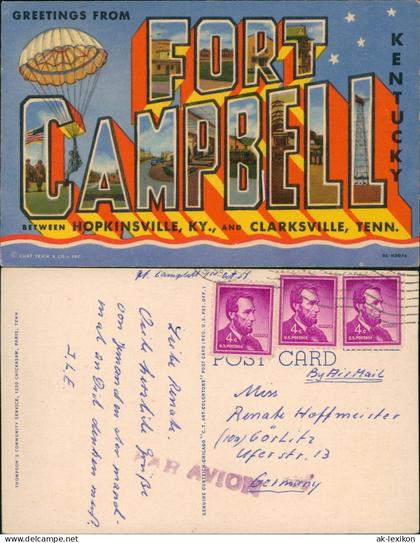 GREETINGS FROM
FORT
CAMPBELL
KENTUCKY
BETWEEN HOPKINSVILLE, KY., AND CLARKSVILLE, TENN.
© CURT TEICH & CO., INC.
Ft. Campbell
THOMPSON'S COMMUNITY SERVICE, 1220 CHICKASAW, PARIS, TENN
Liebe Renate.
Viele herzliche Grüße
von Jemanden der manch-
mal an Dich denken muß.
GENUINE CURTEICH-CHICAGO "C.T. ART-COLORTONE" POST CARD (REG. U.S. PAT. OFF.)
4¢
U.S. POSTAGE
4¢
U.S. POSTAGE
4¢
U.S. POSTAGE
POST CARD
By Air Mail
Miss
Renate Hoffmeister
(10b) Görlitz
Uferstr. 13
Germany
PAR AVION
www.delcampe.net
ak-lexikon